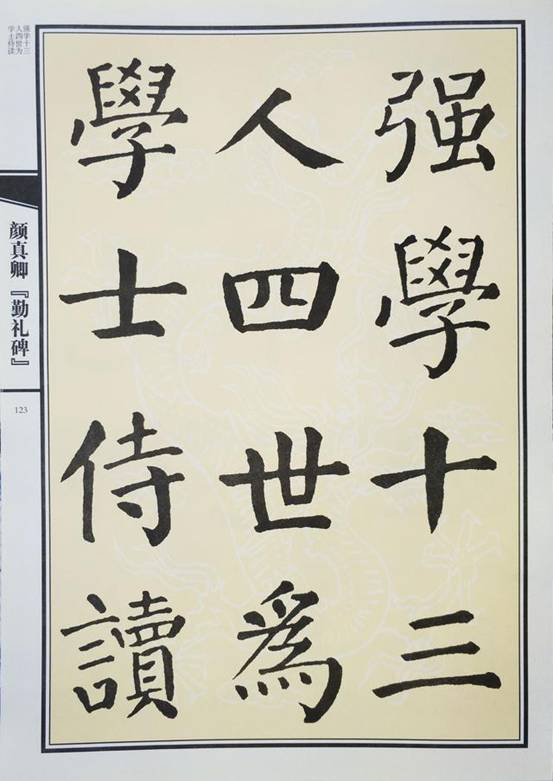 强學十三
人四世為
學士侍讀
强学十三
人四世为
学士侍读
颜真卿『勤礼碑』
123